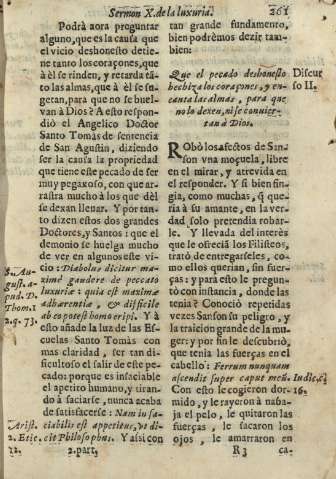 Sermon X. de la luxuria. 261
Podrà aora preguntar
alguno, que es la causa que
el vicio deshonesto detie-
ne tanto los coraçones, que
à èl se rinden, y retarda tã-
to las almas, que à èl se su-
getan, para que no se buel-
van à Dios? A esto respon-
diò el Angelico Doctor
Santo Tomàs de sentencia
de San Agustin, diziendo
ser la causa la propriedad
que tiene este pecado de ser
muy pegaxoso, con que ar-
rastra mucho à los que dèl
se dexan llevar. Y por tan-
to dizen estos dos grandes
Doctores, y Santos: que el
demonio se huelga mucho
de ver en algunos este vi-
cio: Diabolus dicitur ma-
ximè gaudere de peccato
luxuriæ: quia est maximæ
adhærentiæ, & difficilè
ab eo potest homo eripi. Y à
esto añade la luz de las Es-
cuelas Santo Tomàs con
mas claridad, ser tan di-
ficultoso el salir de este pe-
cado: porque es insaciable
el apetito humano, y tiran-
do à saciarse, nunca acaba
de satisfacerse: Nam insa-
ciabilis est appetitus, vt di-
cit Philosophus. Y assi con
S. Au-
gust. a-
pud. D.
Thom. 1
2. q. 73.
Arist.
2. Etic. c.
12.
2. part.
tan grande fundamento,
bien podrèmos dezir tam-
bien:
Que el pecado deshonesto
hechiza los coraçones, y en-
canta las almas, para que
no lo dexen, ni se convier-
tan à Dios.
Discur
so II.
Robò los afectos de San-
son vna moçuela, libre
en el mirar, y atrevida en
el responder. Y si bien fin-
gia, como muchas, q̃ que-
ria à su amante, en la ver-
dad solo pretendia robar-
le. Y llevada del interès
que le ofreciò los Filisteos,
tratò de entregarseles, co-
mo ellos querian, sin fuer-
ças: y para esto le pregun-
tò con instancia, donde las
tenia? Conociò repetidas
vezes Sanson su peligro, y
la traicion grande de la mu
ger: y por fin le descubriò,
que tenia las fuerças en el
cabello: Ferrum nunquam
ascendit super caput meũ.
Con esto le cogieron dor-
mido, y le rayeron à naba-
ja el pelo, le quitaron las
fuerças, le sacaron los
ojos, le amarraron en
Indic. c.
16.
R 3 ca-